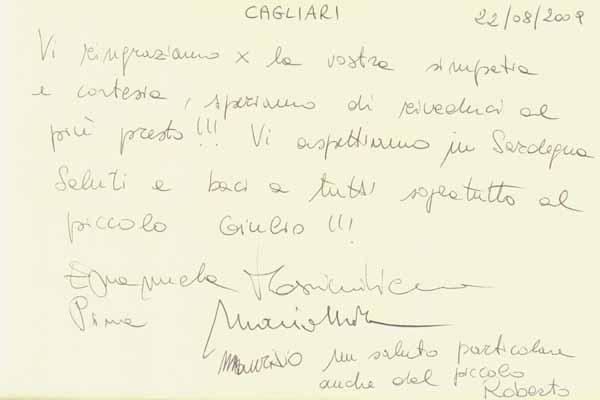 CAGLIARI 22/08/2009
Vi ringraziamo x la vostra simpatia
e cortesia, speriamo di rivederci al
più presto!!! Vi aspettiamo in Sardegna
Saluti e baci a tutti sopratutto al
piccolo Giulio !!!
Emanuela Massimiliano
Maurizio un saluto particolare
anche dal piccolo
Roberto